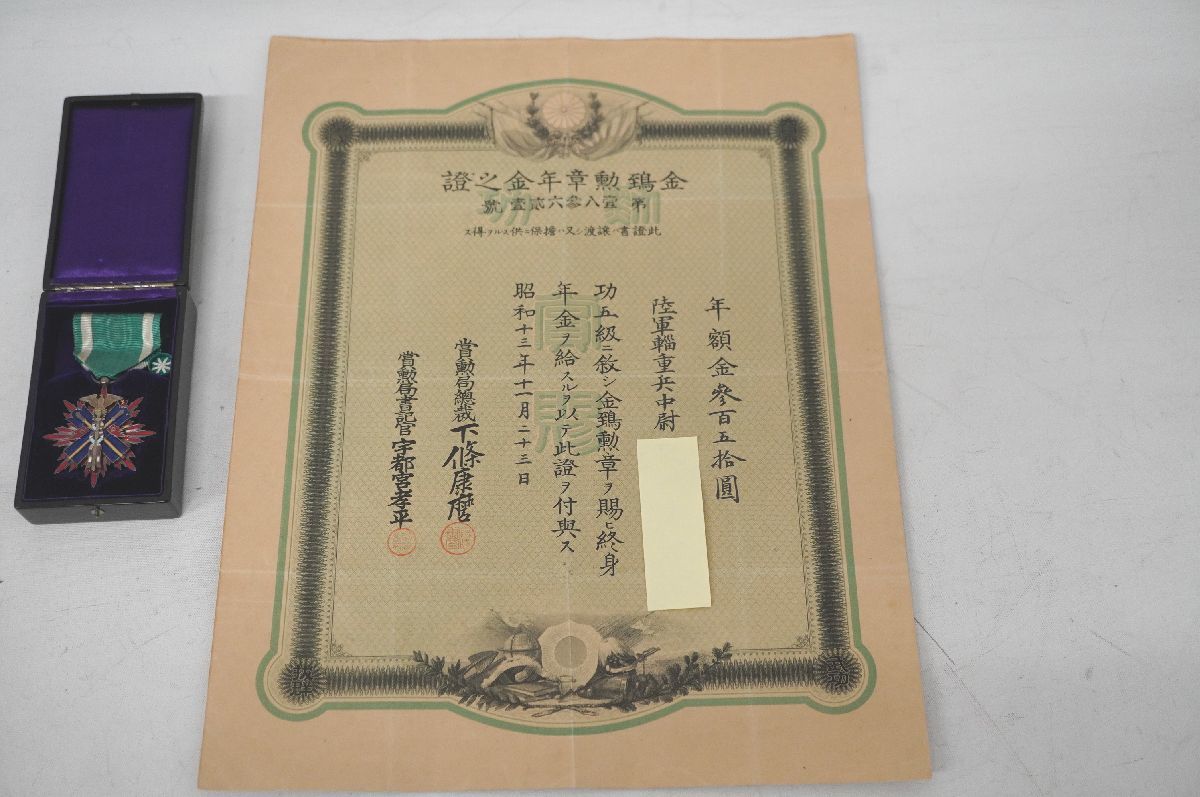 金鵄勲章年金之證
第壹八參六貳壹號
此證書ハ譲渡シ又ハ擔保ニ供スルヲ得ス
年額金參百五拾圓
陸軍輜重兵中尉
功五級ニ敘シ金鵄勲章ヲ賜ヒ終身
年金ヲ給スルヲ以テ此證ヲ付與ス
昭和十三年十一月二十三日
賞勲局總裁下條康麿
賞勲局書記官宇都宮孝平